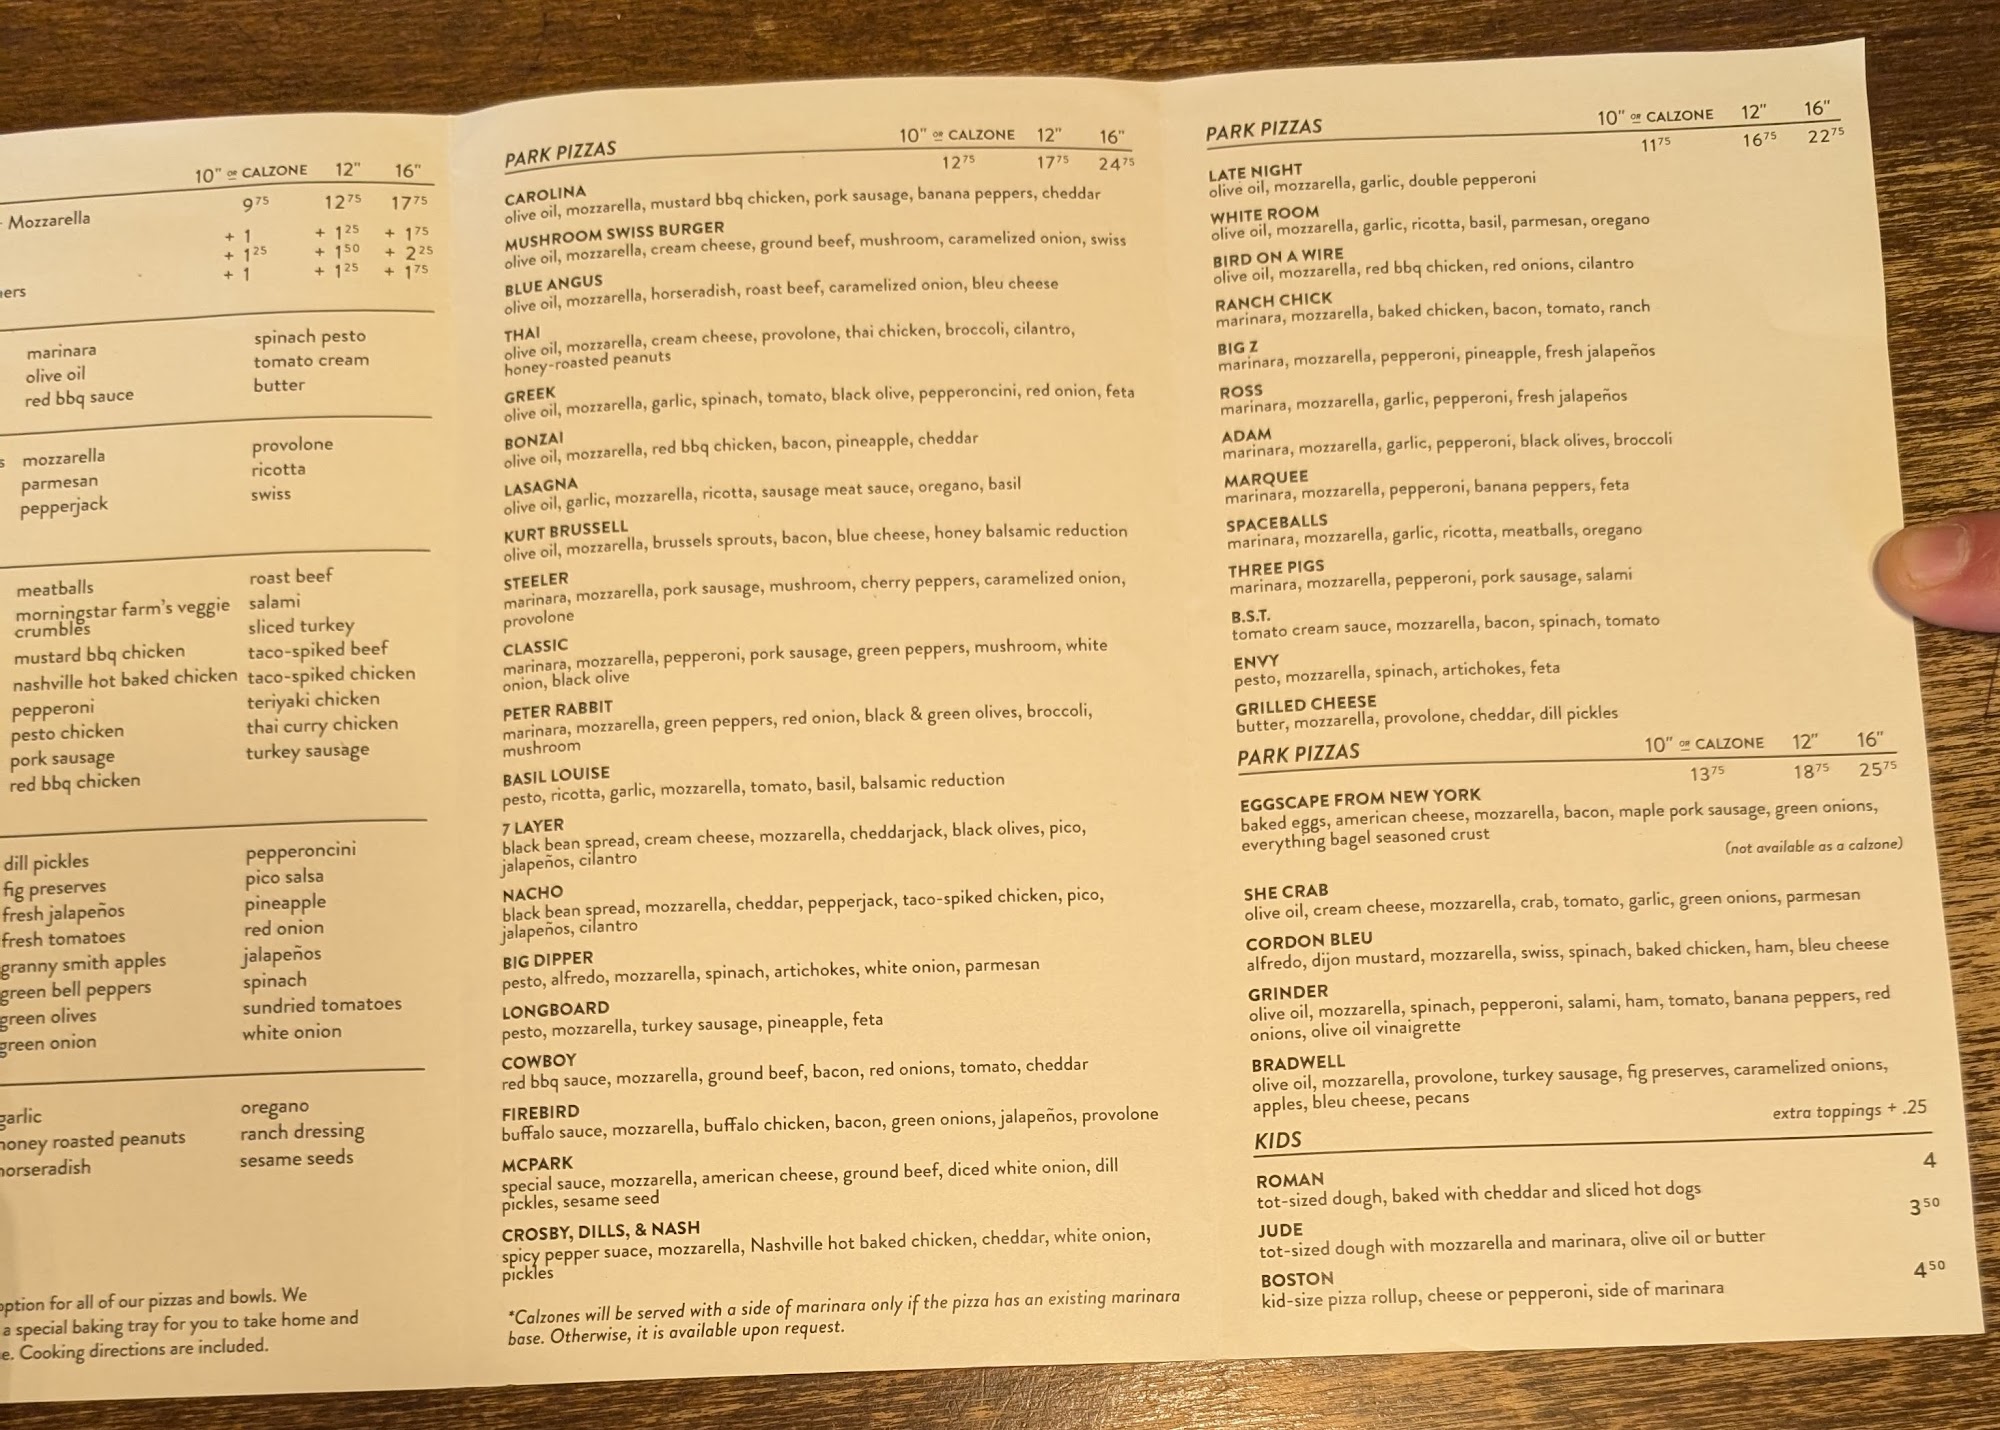 10" OR CALZONE 12" 16"
Mozzarella 9⁷⁵ 12⁷⁵ 17⁷⁵
+ 1 + 1²⁵ + 1⁷⁵
+ 1²⁵ + 1⁵⁰ + 2²⁵
+ 1 + 1²⁵ + 1⁷⁵
marinara spinach pesto
olive oil tomato cream
red bbq sauce butter
mozzarella provolone
parmesan ricotta
pepperjack swiss
meatballs roast beef
morningstar farm's veggie salami
crumbles sliced turkey
mustard bbq chicken taco-spiked beef
nashville hot baked chicken taco-spiked chicken
pepperoni teriyaki chicken
pesto chicken thai curry chicken
pork sausage turkey sausage
red bbq chicken
dill pickles pepperoncini
fig preserves pico salsa
fresh jalapeños pineapple
fresh tomatoes red onion
granny smith apples jalapeños
green bell peppers spinach
green olives sundried tomatoes
green onion white onion
garlic oregano
honey roasted peanuts ranch dressing
horseradish sesame seeds
option for all of our pizzas and bowls. We
a special baking tray for you to take home and
Cooking directions are included.
PARK PIZZAS 10" OR CALZONE 12" 16"
12⁷⁵ 17⁷⁵ 24⁷⁵
CAROLINA
olive oil, mozzarella, mustard bbq chicken, pork sausage, banana peppers, cheddar
MUSHROOM SWISS BURGER
olive oil, mozzarella, cream cheese, ground beef, mushroom, caramelized onion, swiss
BLUE ANGUS
olive oil, mozzarella, horseradish, roast beef, caramelized onion, bleu cheese
THAI
olive oil, mozzarella, cream cheese, provolone, thai chicken, broccoli, cilantro,
honey-roasted peanuts
GREEK
olive oil, mozzarella, garlic, spinach, tomato, black olive, pepperoncini, red onion, feta
BONZAI
olive oil, mozzarella, red bbq chicken, bacon, pineapple, cheddar
LASAGNA
olive oil, garlic, mozzarella, ricotta, sausage meat sauce, oregano, basil
KURT BRUSSELL
olive oil, mozzarella, brussels sprouts, bacon, blue cheese, honey balsamic reduction
STEELER
marinara, mozzarella, pork sausage, mushroom, cherry peppers, caramelized onion,
provolone
CLASSIC
marinara, mozzarella, pepperoni, pork sausage, green peppers, mushroom, white
onion, black olive
PETER RABBIT
marinara, mozzarella, green peppers, red onion, black & green olives, broccoli,
mushroom
BASIL LOUISE
pesto, ricotta, garlic, mozzarella, tomato, basil, balsamic reduction
7 LAYER
black bean spread, cream cheese, mozzarella, cheddarjack, black olives, pico,
jalapeños, cilantro
NACHO
black bean spread, mozzarella, cheddar, pepperjack, taco-spiked chicken, pico,
jalapeños, cilantro
BIG DIPPER
pesto, alfredo, mozzarella, spinach, artichokes, white onion, parmesan
LONGBOARD
pesto, mozzarella, turkey sausage, pineapple, feta
COWBOY
red bbq sauce, mozzarella, ground beef, bacon, red onions, tomato, cheddar
FIREBIRD
buffalo sauce, mozzarella, buffalo chicken, bacon, green onions, jalapeños, provolone
MCPARK
special sauce, mozzarella, american cheese, ground beef, diced white onion, dill
pickles, sesame seed
CROSBY, DILLS, & NASH
spicy pepper suace, mozzarella, Nashville hot baked chicken, cheddar, white onion,
pickles
*Calzones will be served with a side of marinara only if the pizza has an existing marinara
base. Otherwise, it is available upon request.
PARK PIZZAS 10" OR CALZONE 12" 16"
11⁷⁵ 16⁷⁵ 22⁷⁵
LATE NIGHT
olive oil, mozzarella, garlic, double pepperoni
WHITE ROOM
olive oil, mozzarella, garlic, ricotta, basil, parmesan, oregano
BIRD ON A WIRE
olive oil, mozzarella, red bbq chicken, red onions, cilantro
RANCH CHICK
marinara, mozzarella, baked chicken, bacon, tomato, ranch
BIG Z
marinara, mozzarella, pepperoni, pineapple, fresh jalapeños
ROSS
marinara, mozzarella, garlic, pepperoni, fresh jalapeños
ADAM
marinara, mozzarella, garlic, pepperoni, black olives, broccoli
MARQUEE
marinara, mozzarella, pepperoni, banana peppers, feta
SPACEBALLS
marinara, mozzarella, garlic, ricotta, meatballs, oregano
THREE PIGS
marinara, mozzarella, pepperoni, pork sausage, salami
B.S.T.
tomato cream sauce, mozzarella, bacon, spinach, tomato
ENVY
pesto, mozzarella, spinach, artichokes, feta
GRILLED CHEESE
butter, mozzarella, provolone, cheddar, dill pickles
PARK PIZZAS 10" OR CALZONE 12" 16"
13⁷⁵ 18⁷⁵ 25⁷⁵
EGGSCAPE FROM NEW YORK
baked eggs, american cheese, mozzarella, bacon, maple pork sausage, green onions,
everything bagel seasoned crust
(not available as a calzone)
SHE CRAB
olive oil, cream cheese, mozzarella, crab, tomato, garlic, green onions, parmesan
CORDON BLEU
alfredo, dijon mustard, mozzarella, swiss, spinach, baked chicken, ham, bleu cheese
GRINDER
olive oil, mozzarella, spinach, pepperoni, salami, ham, tomato, banana peppers, red
onions, olive oil vinaigrette
BRADWELL
olive oil, mozzarella, provolone, turkey sausage, fig preserves, caramelized onions,
apples, bleu cheese, pecans
extra toppings + .25
KIDS
ROMAN 4
tot-sized dough, baked with cheddar and sliced hot dogs
JUDE 3⁵⁰
tot-sized dough with mozzarella and marinara, olive oil or butter
BOSTON 4⁵⁰
kid-size pizza rollup, cheese or pepperoni, side of marinara